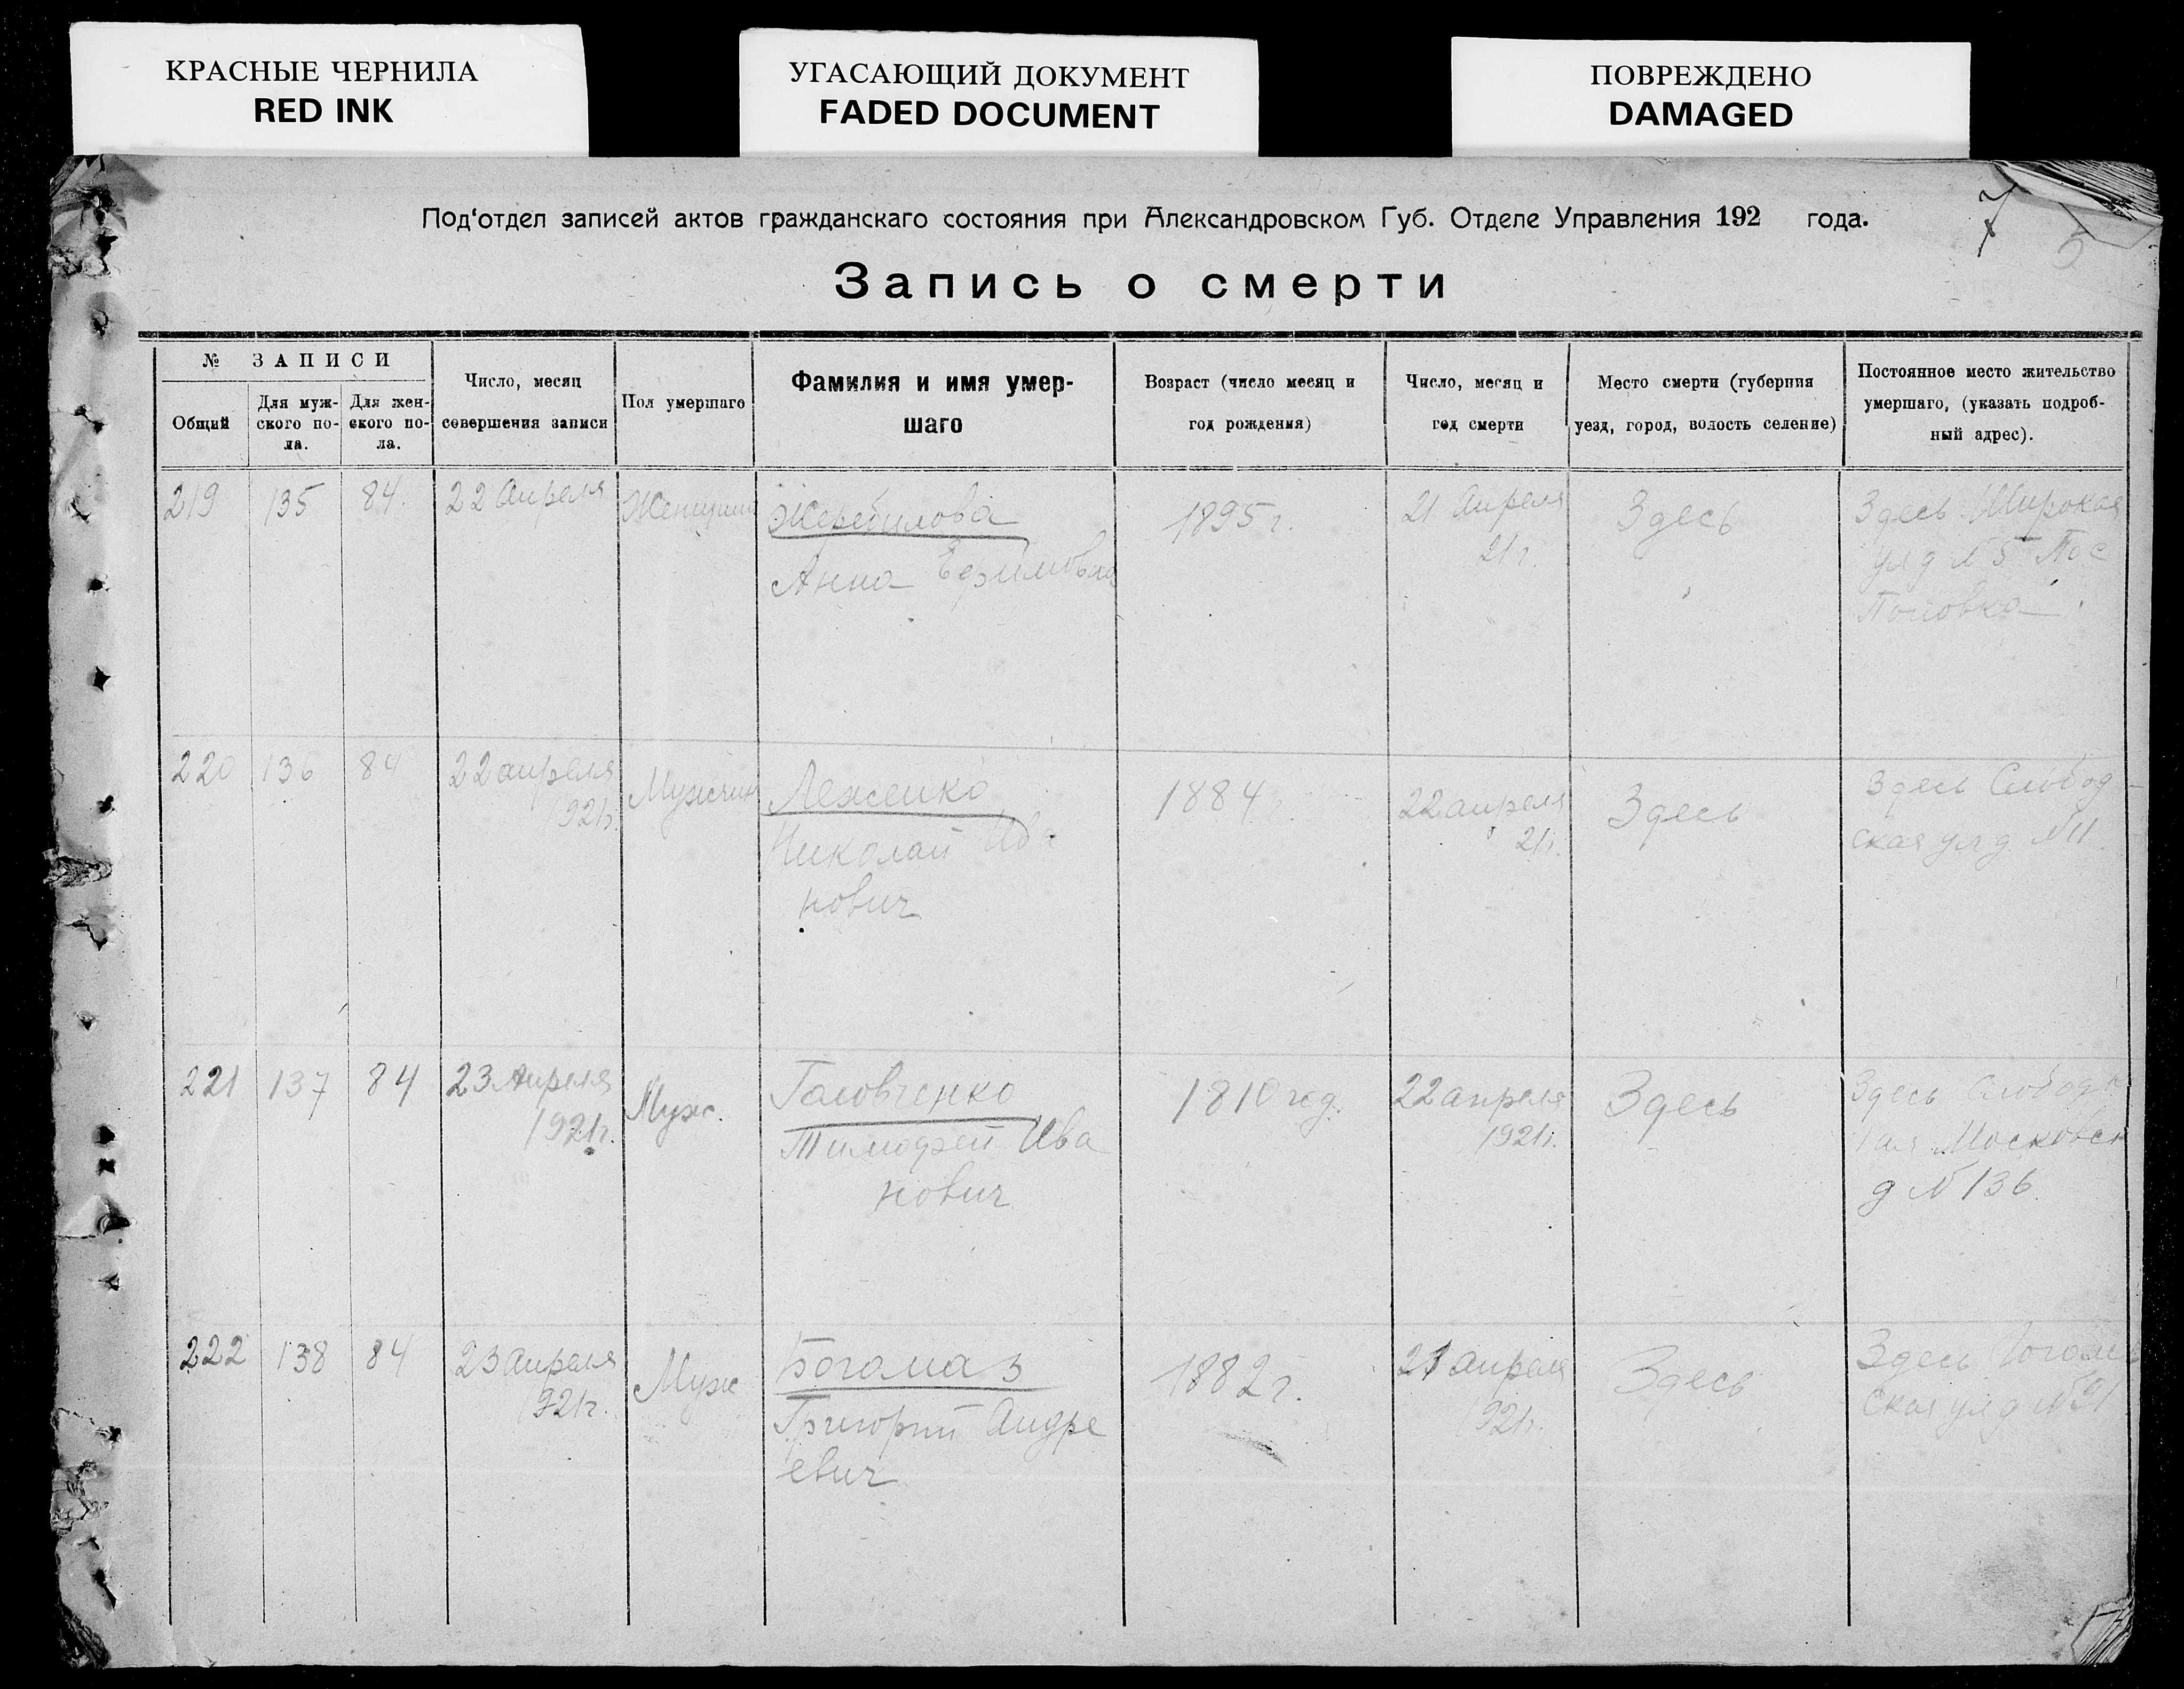 КРАСНЫЕ ЧЕРНИЛА
RED INK
УГАСАЮЩИЙ ДОКУМЕНТ
FADED DOCUMENT
ПОВРЕЖДЕНО
DAMAGED
7
5
Под‘отдел записей актов гражданскаго состояния при Александровском Губ. Отделе Управления 192 года.
Запись о смерти
№ ЗАПИСИ
Общий
Для муж-
ского по-
ла.
Для жен-
ского по-
ла.
Число, месяц
совершения записи
Пол умершаго
Фамилия и имя умер-
шаго
Возраст (число месяц и
год рождения)
Число, месяц и
год смерти
Место смерти (губерния
уезд, город, волость селение)
Постоянное место жительство
умершаго, (указать подроб-
ный адрес).
219
135
84.
22 Апреля
Женщин
Жеребилова
Анна
1895 г.
21 Апреля
21 г.
Здесь
Здесь Широкая
ул д № 5 Пос
220
136
84
22 апреля
921г.
Мужчин
Леженко
Николай Ива
нович
1884
22 апреля
21г.
Здесь
Здесь Слобод
ская ул д №11
221
137
84
23 Апреля
1921г.
Муж.
Головченко
Тимофей Ива
нович
1810 год.
22 апреля
1921г.
Здесь
Здесь
Московск
д № 136.
222
138
84
23 Апреля
921г.
Муж
Богомаз
Григорий Андре
евич
1882 г.
21 апреля
1921г.
Здесь
Здесь Гоголев
ская ул д №91